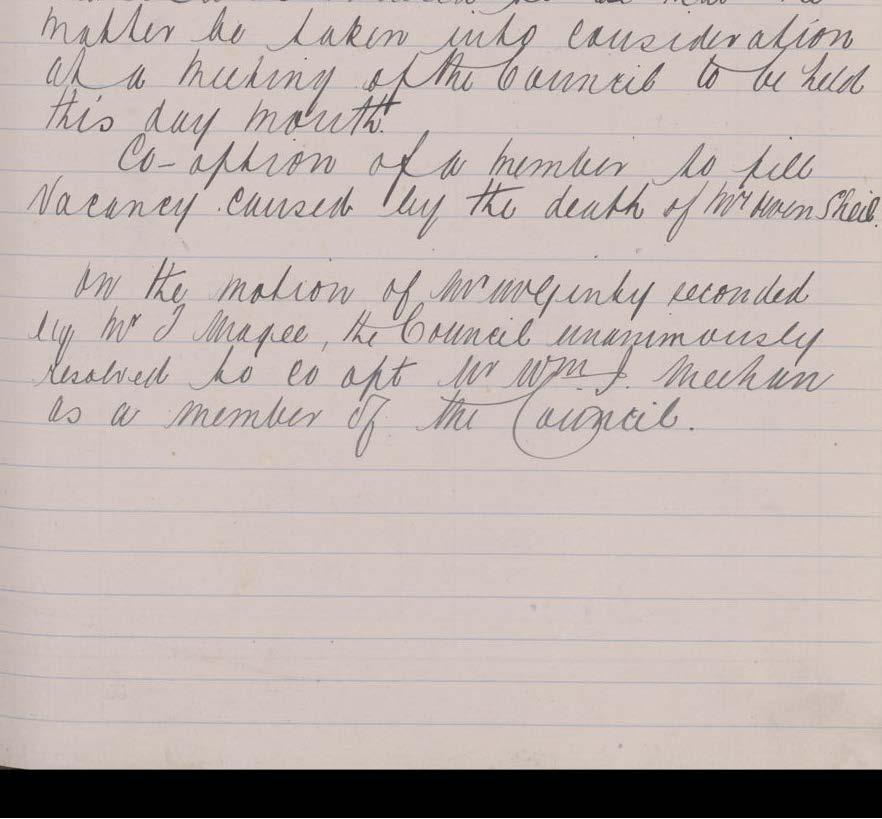 matter be taken into consideration
at a meeting of the Council to be held
this day month.
Co-option of a member to fill
Vacancy caused by the death of Mr Owen Sheil.
On the motion of Mr McGinty seconded
by Mr J Magee, the Council unanimously
resolved to co opt Mr Wm J. Meehan
as a member of the Council.